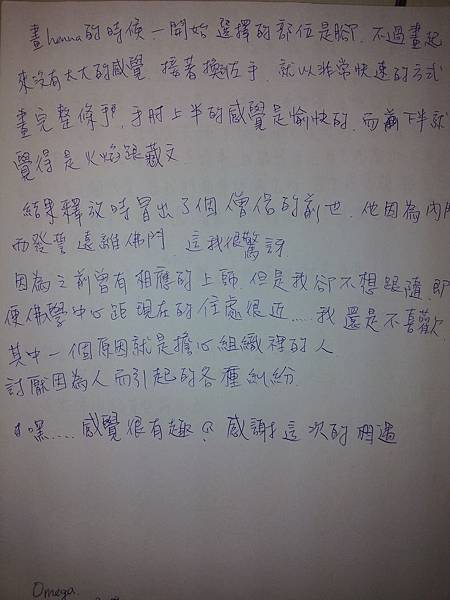 畫henna的時候,一開始選擇的部位是腳,不過畫起
來沒有太大的感覺,接著換左手,就以非常快速的方式
畫完整條手,手肘上半的感覺是愉快的,而下半就
覺得是火焰跟藏文
結果釋放時冒出了個僧侶的前世,他因為內鬥
而發誓遠離佛門,這我很驚訝
因為之前曾有相應的上師,但是我卻不想跟隨,即
便佛學中心距現在的住處很近......我還是不喜歡
其中一個原因就是擔心組織裡的人
討厭因為人而引起的各種糾紛
嘿.....感覺很有趣 感謝這次的相遇
Omega